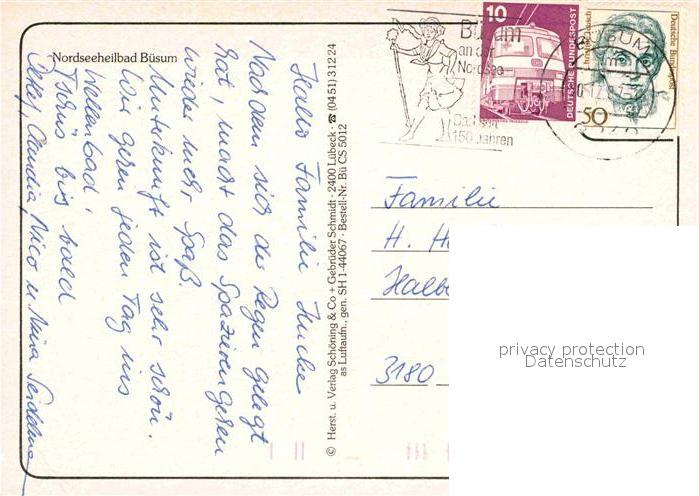 Nordseeheilbad Büsum
Hallo Familie
Nachdem sich der Regen gelegt
hat macht das Spazierengehen
wieder mehr Spaß.
Unterkunft ist sehr schön.
Wir gehen jeden Tag ins
Wellenbad.
Tschüs bis bald
Claudia, Nico u. Maria
© Herst. u. Verlag Schöning & Co + Gebrüder Schmidt · 2400 Lübeck · ☎ (0451) 31224
as Luftaufn., gen. SH 1-44067 · Bestell-Nr. Bü CS 5012
Büsum
an der
Nordsee
Bad seit
150 Jahren
10
DEUTSCHE BUNDESPOST
Deutsche Bundespost
50
BÜSUM
Familie
H.
3180
privacy protection
Datenschutz